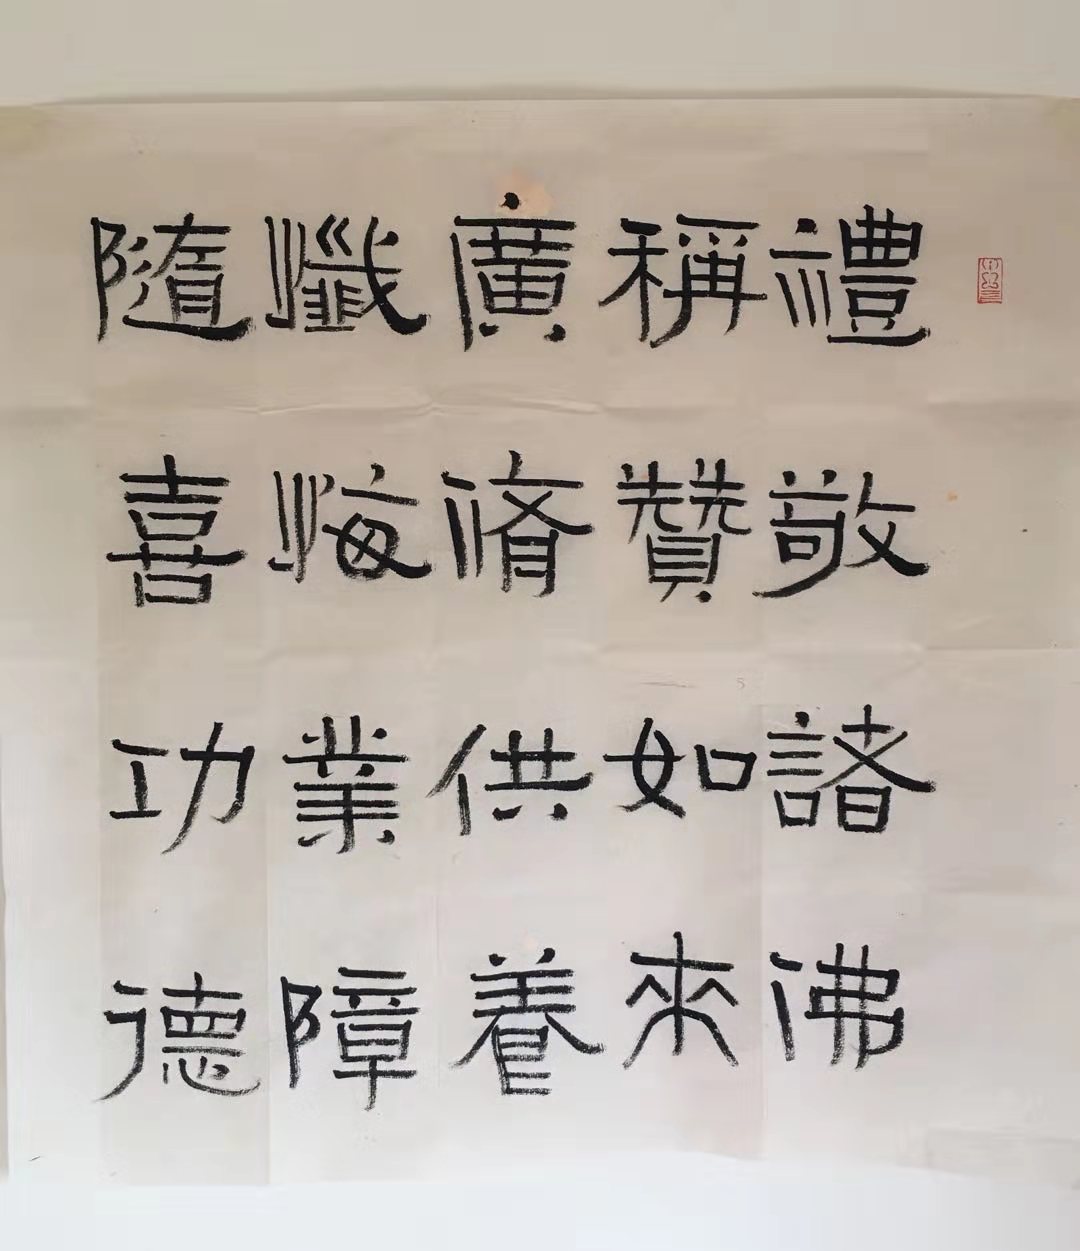 禮敬諸佛
稱贊如來
廣脩供養
懺悔業障
隨喜功德